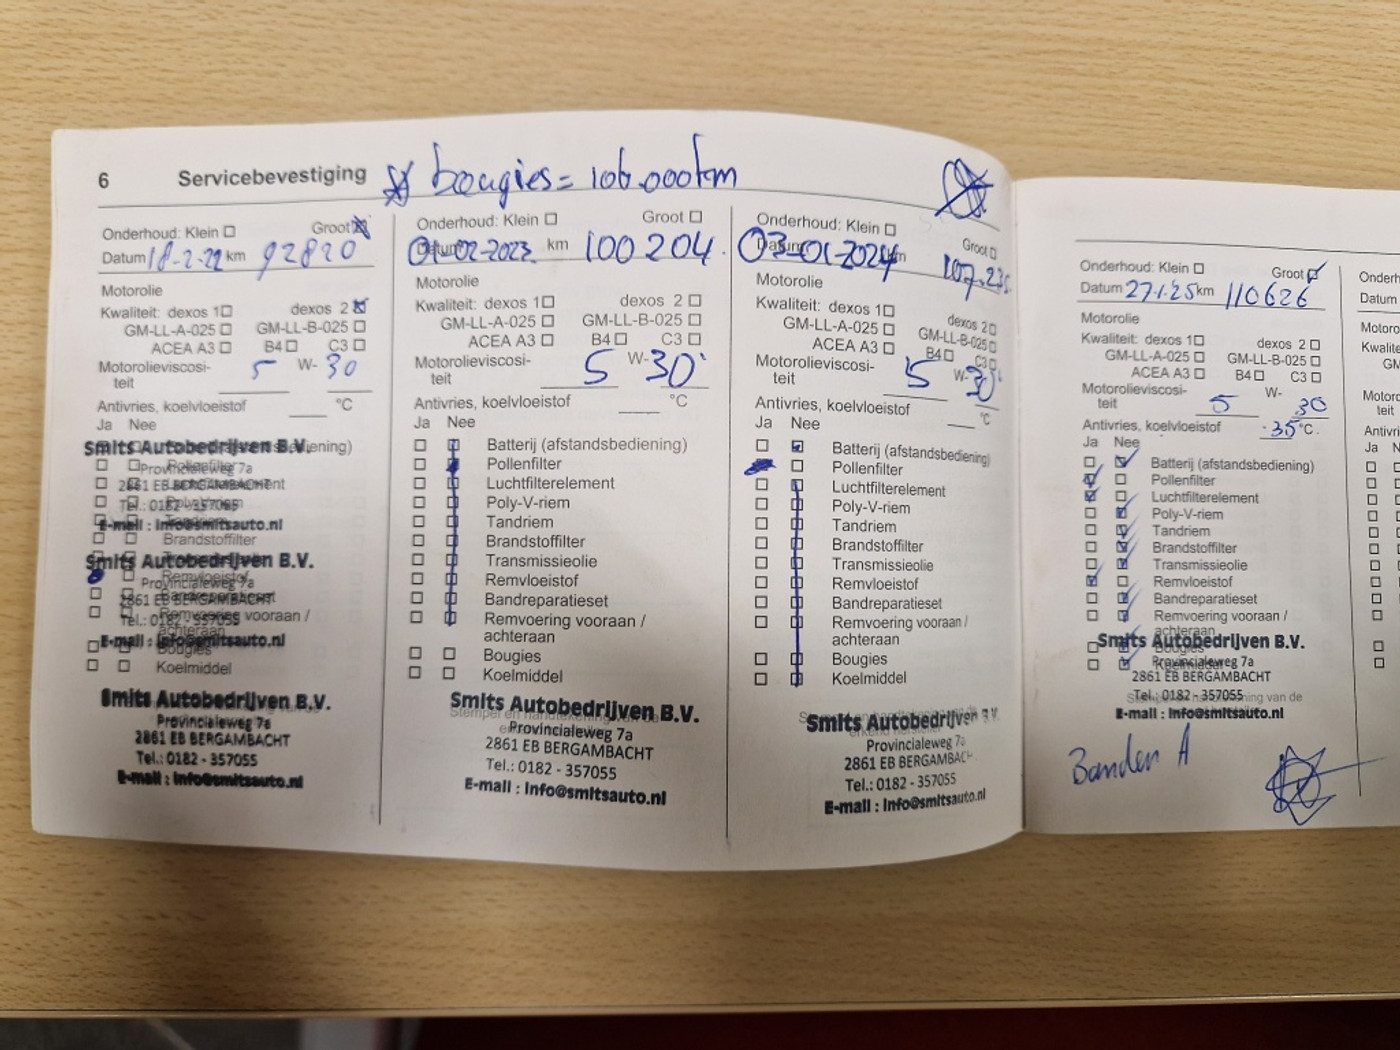 6 Servicebevestiging bougies = 106.000km
Onderhoud: Klein Groot
Datum 18-2-22 km 92820
Motorolie
Kwaliteit: dexos 1 dexos 2
GM-LL-A-025 GM-LL-B-025
ACEA A3 B4 C3
Motorolieviscosi-
teit 5 W- 30
Antivries, koelvloeistof °C
Ja Nee
Smits Autobedrijven B.V.
Provincialeweg 7a
2861 EB BERGAMBACHT
Tel.: 0182 - 357055
E-mail : info@smitsauto.nl
Brandstoffilter
Smits Autobedrijven B.V.
Remvloeistof
Provincialeweg 7a
2861 EB BERGAMBACHT
Remvoering vooraan /
Tel.: 0182 - 357055
achteraan
E-mail : info@smitsauto.nl
Bougies
Koelmiddel
Smits Autobedrijven B.V.
Provincialeweg 7a
2861 EB BERGAMBACHT
Tel.: 0182 - 357055
E-mail : info@smitsauto.nl
Onderhoud: Klein Groot
Datum 01-02-2023 km 100204
Motorolie
Kwaliteit: dexos 1 dexos 2
GM-LL-A-025 GM-LL-B-025
ACEA A3 B4 C3
Motorolieviscosi-
teit 5 W- 30
Antivries, koelvloeistof °C
Ja Nee
Batterij (afstandsbediening)
Pollenfilter
Luchtfilterelement
Poly-V-riem
Tandriem
Brandstoffilter
Transmissieolie
Remvloeistof
Bandreparatieset
Remvoering vooraan /
achteraan
Bougies
Koelmiddel
Smits Autobedrijven B.V.
Stempel en handtekening van de
Provincialeweg 7a
2861 EB BERGAMBACHT
Tel.: 0182 - 357055
E-mail : info@smitsauto.nl
Onderhoud: Klein Groot
Datum 03-01-2024 km
Motorolie
Kwaliteit: dexos 1 dexos 2
GM-LL-A-025 GM-LL-B-025
ACEA A3 B4 C3
Motorolieviscosi-
teit 5 W- 30
Antivries, koelvloeistof °C
Ja Nee
Batterij (afstandsbediening)
Pollenfilter
Luchtfilterelement
Poly-V-riem
Tandriem
Brandstoffilter
Transmissieolie
Remvloeistof
Bandreparatieset
Remvoering vooraan /
achteraan
Bougies
Koelmiddel
Smits Autobedrijven
Provincialeweg 7a
2861 EB BERGAMBAC
Tel.: 0182 - 357055
E-mail : info@smitsauto.nl
Onderhoud: Klein Groot
Datum 27.1.25 km 110626
Motorolie
Kwaliteit: dexos 1 dexos 2
GM-LL-A-025 GM-LL-B-025
ACEA A3 B4 C3
Motorolieviscosi-
teit 5 W- 30
Antivries, koelvloeistof -35 °C.
Ja Nee
Batterij (afstandsbediening)
Pollenfilter
Luchtfilterelement
Poly-V-riem
Tandriem
Brandstoffilter
Transmissieolie
Remvloeistof
Bandreparatieset
Remvoering vooraan /
achteraan
Smits Autobedrijven B.V.
Bougies
Koelmiddel
Provincialeweg 7a
2861 EB BERGAMBACHT
Tel.: 0182 - 357055
E-mail : info@smitsauto.nl
Banden A
Onderh
Datum
Motoro
Kwalite
GM
Motoro
teit
Antivri
Ja Nee